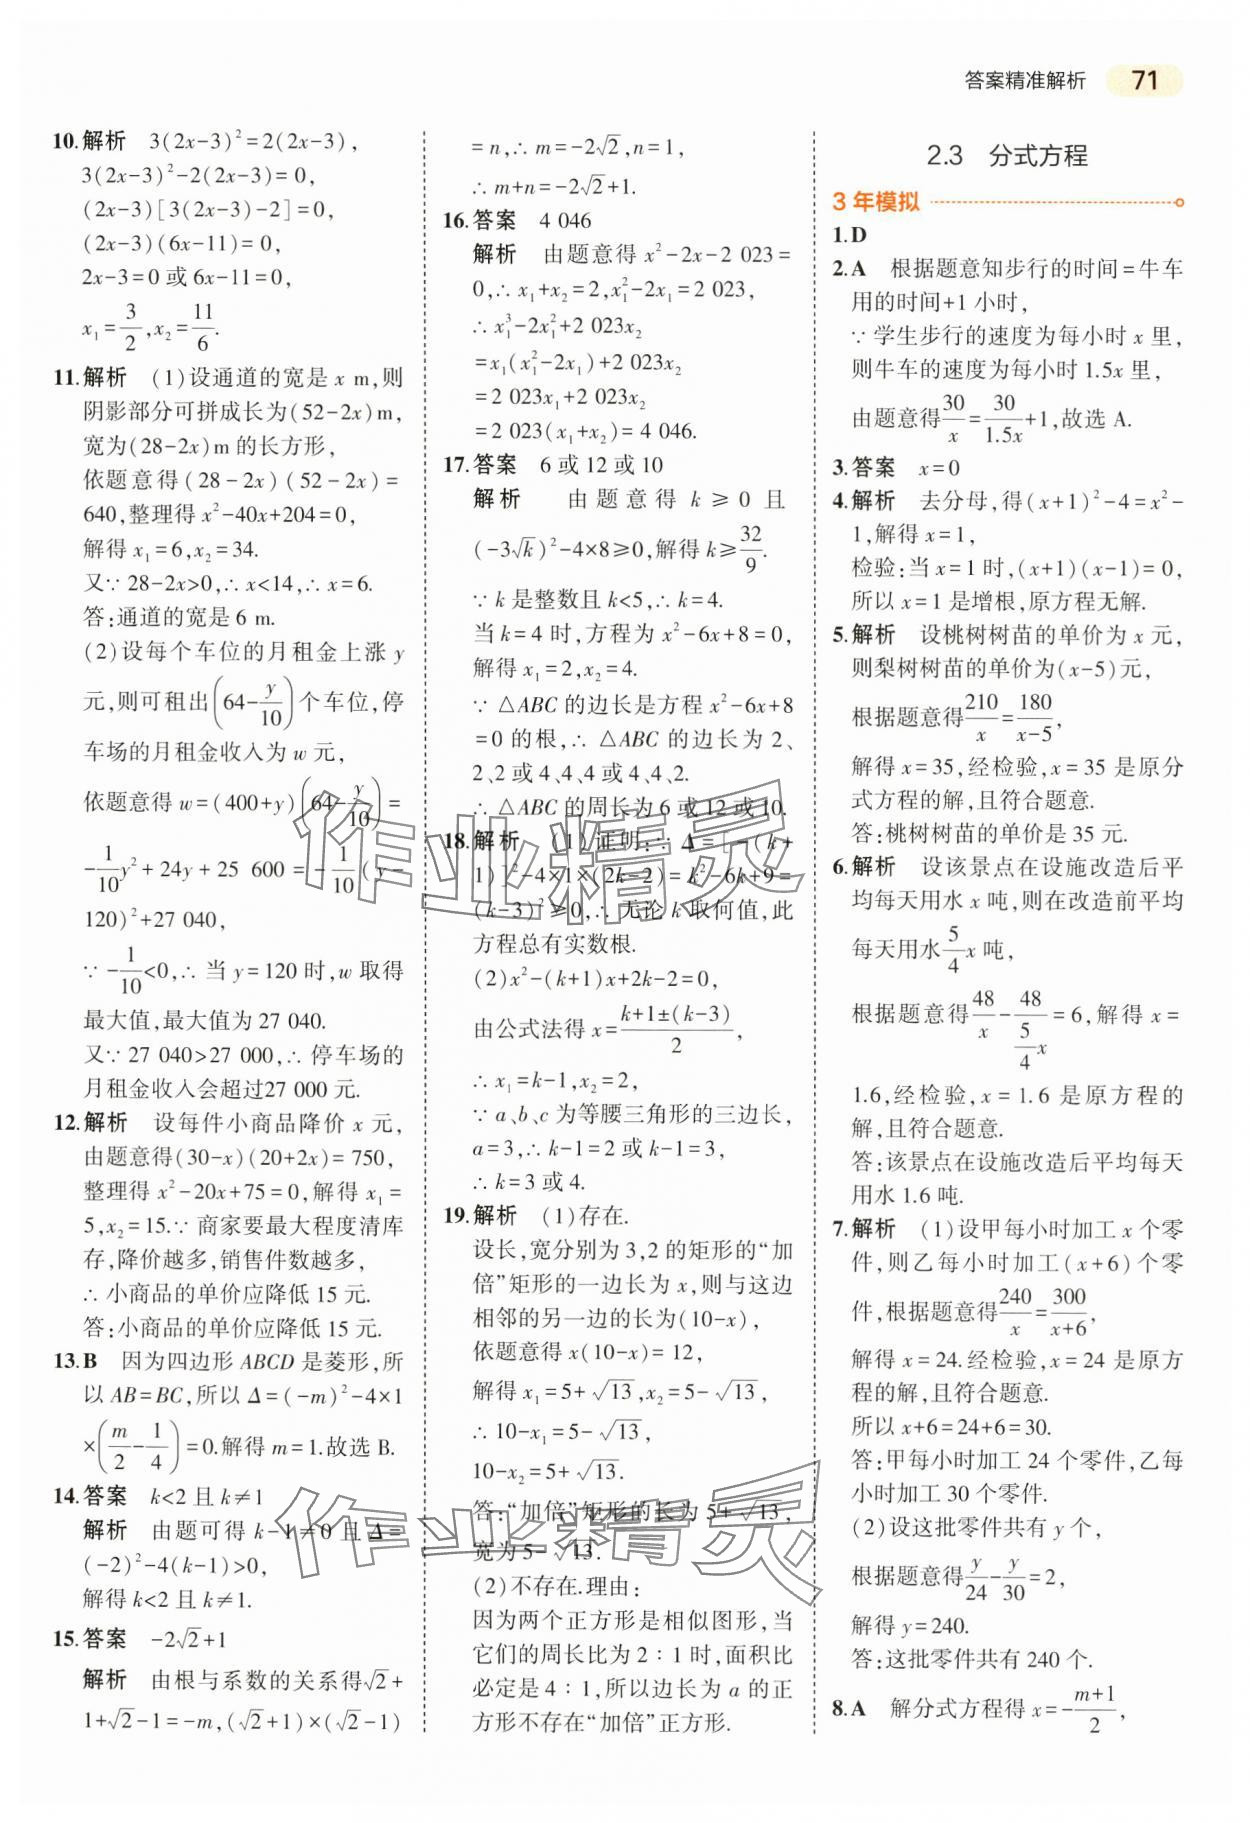 答案精准解析 71
10.解析 3(2x-3)²=2(2x-3),
3(2x-3)²-2(2x-3)=0,
(2x-3)[3(2x-3)-2]=0,
(2x-3)(6x-11)=0,
2x-3=0或6x-11=0,
x₁=3/2,x₂=11/6.
11.解析 (1)设通道的宽是x m,则
阴影部分可拼成长为(52-2x)m,
宽为(28-2x)m的长方形,
依题意得(28-2x)(52-2x)=
640,整理得x²-40x+204=0,
解得x₁=6,x₂=34.
又∵28-2x>0,∴x<14,∴x=6.
答:通道的宽是6 m.
(2)设每个车位的月租金上涨y
元,则可租出(64-y/10)个车位,停
车场的月租金收入为w元,
依题意得w=(400+y)(64-y/10)=
-1/10y²+24y+25 600=-1/10(y-
120)²+27 040,
∵-1/10<0,∴当y=120时,w取得
最大值,最大值为27 040.
又∵27 040>27 000,∴停车场的
月租金收入会超过27 000元.
12.解析 设每件小商品降价x元,
由题意得(30-x)(20+2x)=750,
整理得x²-20x+75=0,解得x₁=
5,x₂=15.∵商家要最大程度清库
存,降价越多,销售件数越多,
∴小商品的单价应降低15元.
答:小商品的单价应降低15元.
13.B 因为四边形ABCD是菱形,所
以AB=BC,所以Δ=(-m)²-4×1
×(m/2-1/4)=0.解得m=1.故选B.
14.答案 k<2且k≠1
解析 由题可得k-1≠0且Δ=
(-2)²-4(k-1)>0,
解得k<2且k≠1.
15.答案 -2√2+1
解析 由根与系数的关系得√2+
1+√2-1=-m,(√2+1)×(√2-1)
=n,∴m=-2√2,n=1,
∴m+n=-2√2+1.
16.答案 4 046
解析 由题意得x²-2x-2 023=
0,∴x₁+x₂=2,x₁²-2x₁=2 023,
∴x₁³-2x₁²+2 023x₂
=x₁(x₁²-2x₁)+2 023x₂
=2 023x₁+2 023x₂
=2 023(x₁+x₂)=4 046.
17.答案 6或12或10
解析 由题意得k≥0且
(-3√k)²-4×8≥0,解得k≥32/9.
∵k是整数且k<5,∴k=4.
当k=4时,方程为x²-6x+8=0,
解得x₁=2,x₂=4.
∵△ABC的边长是方程x²-6x+8
=0的根,∴△ABC的边长为2、
2、2或4、4、4或4、4、2.
∴△ABC的周长为6或12或10.
18.解析 (1)证明:∵Δ=[-(k+
1)]²-4×1×(2k-2)=k²-6k+9=
(k-3)²≥0,∴无论k取何值,此
方程总有实数根.
(2)x²-(k+1)x+2k-2=0,
由公式法得x=k+1±(k-3)/2,
∴x₁=k-1,x₂=2,
∵a、b、c为等腰三角形的三边长,
a=3,∴k-1=2或k-1=3,
∴k=3或4.
19.解析 (1)存在.
设长,宽分别为3,2的矩形的“加
倍”矩形的一边长为x,则与这边
相邻的另一边的长为(10-x),
依题意得x(10-x)=12,
解得x₁=5+√13,x₂=5-√13,
∴10-x₁=5-√13,
10-x₂=5+√13.
答:“加倍”矩形的长为5+√13,
宽为5-√13.
(2)不存在.理由:
因为两个正方形是相似图形,当
它们的周长比为2∶1时,面积比
必定是4∶1,所以边长为a的正
方形不存在“加倍”正方形.
2.3 分式方程
3年模拟
1.D
2.A 根据题意知步行的时间=牛车
用的时间+1小时,
∵学生步行的速度为每小时x里,
则牛车的速度为每小时1.5x里,
由题意得30/x=30/1.5x+1,故选A.
3.答案 x=0
4.解析 去分母,得(x+1)²-4=x²-
1,解得x=1,
检验:当x=1时,(x+1)(x-1)=0,
所以x=1是增根,原方程无解.
5.解析 设桃树树苗的单价为x元,
则梨树树苗的单价为(x-5)元,
根据题意得210/x=180/x-5,
解得x=35,经检验,x=35是原分
式方程的解,且符合题意.
答:桃树树苗的单价是35元.
6.解析 设该景点在设施改造后平
均每天用水x吨,则在改造前平均
每天用水5/4x吨,
根据题意得48/x-48/5/4x=6,解得x=
1.6,经检验,x=1.6是原方程的
解,且符合题意.
答:该景点在设施改造后平均每天
用水1.6吨.
7.解析 (1)设甲每小时加工x个零
件,则乙每小时加工(x+6)个零
件,根据题意得240/x=300/x+6,
解得x=24.经检验,x=24是原方
程的解,且符合题意.
所以x+6=24+6=30.
答:甲每小时加工24个零件,乙每
小时加工30个零件.
(2)设这批零件共有y个,
根据题意得y/24-y/30=2,
解得y=240.
答:这批零件共有240个.
8.A 解分式方程得x=-m+1/2,
作业精灵
作业精灵